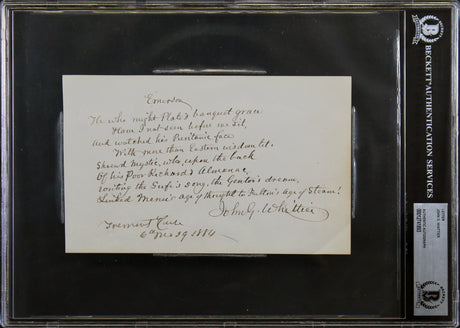 Emerson
He who might Plato's banquet grace
Have I not seen before me sit,
And watched his Puritanic face
With more than Eastern wisdom lit.
Shrewd Mystic, who, upon the back
Of his Poor Richard's Almanac
writing the Sufi's song, the Gentoo's dream,
Linked Menu's age of thought to Fulton's age of Steam!
John G. Whittier
6th Mo 29 1884
BECKETT AUTHENTICATION SERVICES
LETTER
JOHN G. WHITTIER
AUTHENTIC AUTOGRAPH
BECKETT